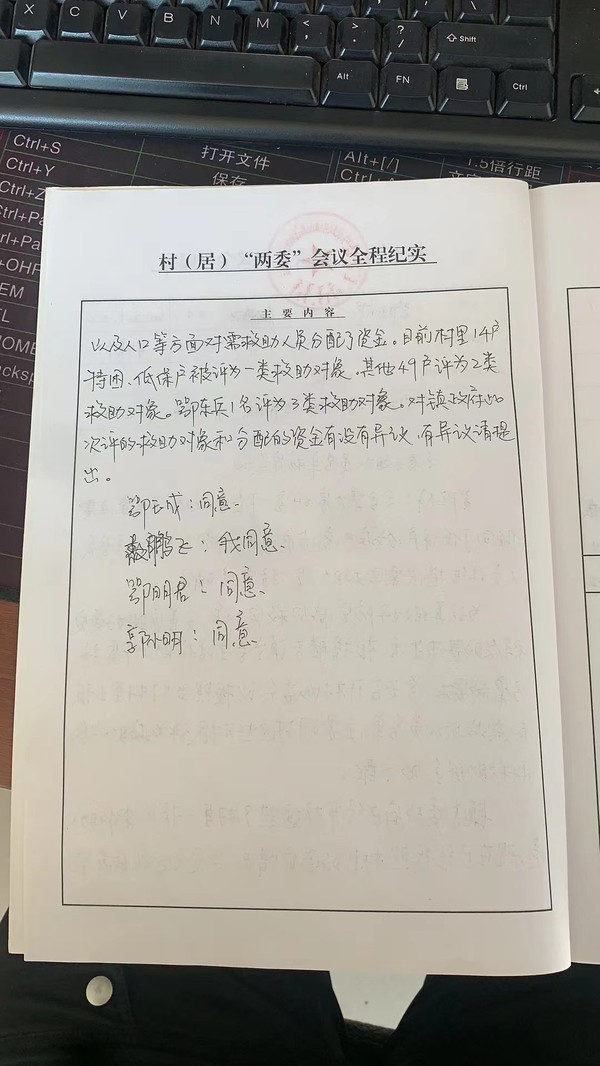 Z
X
C
V
B
N
M
<
,
>
.
?
/
Shift
Alt
FN
Ctrl
Ctrl+S
打开文件
Alt+[/]
1.5倍行距
Ctrl+Y
保存
Ctrl+Z
村（居）“两委”会议全程纪实
主要内容
以及人口等方面对需救助人员分配了资金。目前村里14户
特困、低保户被评为一类救助对象。其他49户评为2类
救助对象。鄂东兵1名评为3类救助对象。对镇政府此
次评的救助对象和分配的资金有没有异议，有异议请提
出。
鄂云成：同意.
敖鹏飞：我同意.
鄂明君：同意.
郭小明：同意.